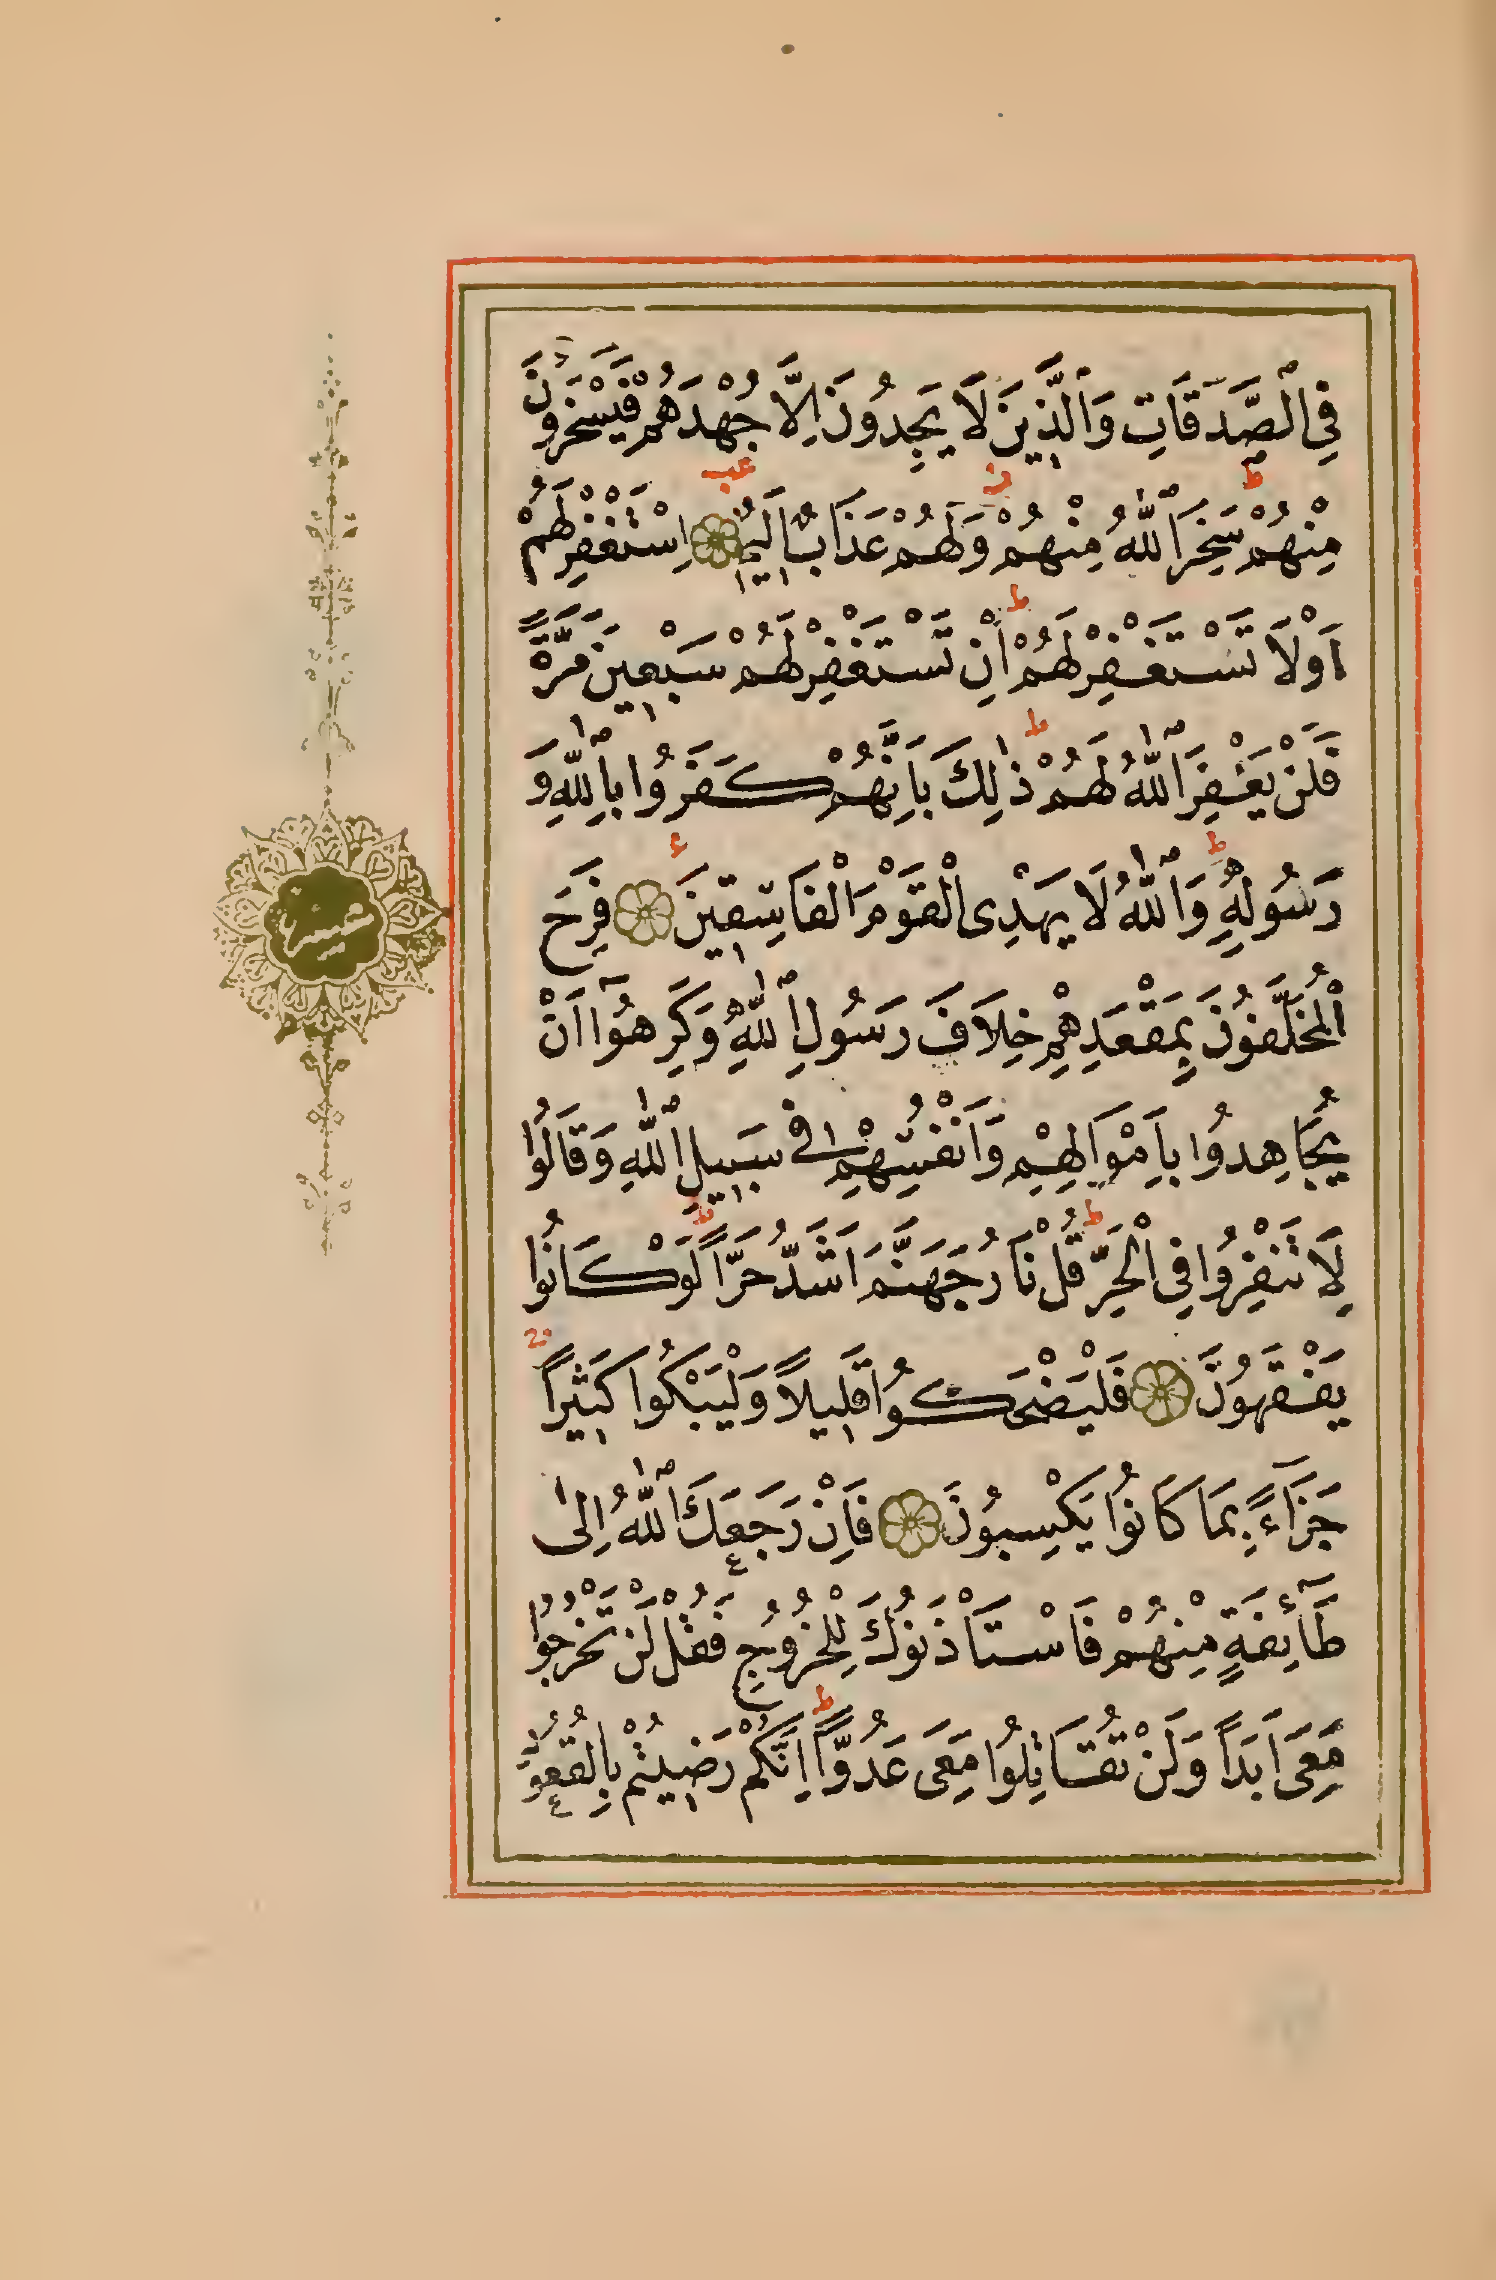 فِي الصَّدَقَاتِ وَالَّذِينَ لَا يَجِدُونَ اِلَّا جُهْدَهُمْ فَيَسْخَرُونَ
مِنْهُمْ سَخِرَ اللّٰهُ مِنْهُمْ وَلَهُمْ عَذَابٌ اَلِيمٌ اِسْتَغْفِرْ لَهُمْ
اَوْ لَا تَسْتَغْفِرْ لَهُمْ اِنْ تَسْتَغْفِرْ لَهُمْ سَبْعِينَ مَرَّةً
فَلَنْ يَغْفِرَ اللّٰهُ لَهُمْ ذٰلِكَ بِاَنَّهُمْ كَفَرُوا بِاللّٰهِ وَ
رَسُولِهِ وَاللّٰهُ لَا يَهْدِى الْقَوْمَ الْفَاسِقِينَ فَرِحَ
الْمُخَلَّفُونَ بِمَقْعَدِهِمْ خِلَافَ رَسُولِ اللّٰهِ وَكَرِهُوٓا اَنْ
يُجَاهِدُوا بِاَمْوَالِهِمْ وَاَنْفُسِهِمْ فِي سَبِيلِ اللّٰهِ وَقَالُوا
لَا تَنْفِرُوا فِي الْحَرِّ قُلْ نَارُ جَهَنَّمَ اَشَدُّ حَرًّا لَوْ كَانُوا
يَفْقَهُونَ فَلْيَضْحَكُوا قَلِيلًا وَلْيَبْكُوا كَثِيرًا
جَزَآءً بِمَا كَانُوا يَكْسِبُونَ فَاِنْ رَجَعَكَ اللّٰهُ اِلٰى
طَآئِفَةٍ مِنْهُمْ فَاسْتَأْذَنُوكَ لِلْخُرُوجِ فَقُلْ لَنْ تَخْرُجُوا
مَعِىَ اَبَدًا وَلَنْ تُقَاتِلُوا مَعِىَ عَدُوًّا اِنَّكُمْ رَضِيتُمْ بِالْقُعُودِ